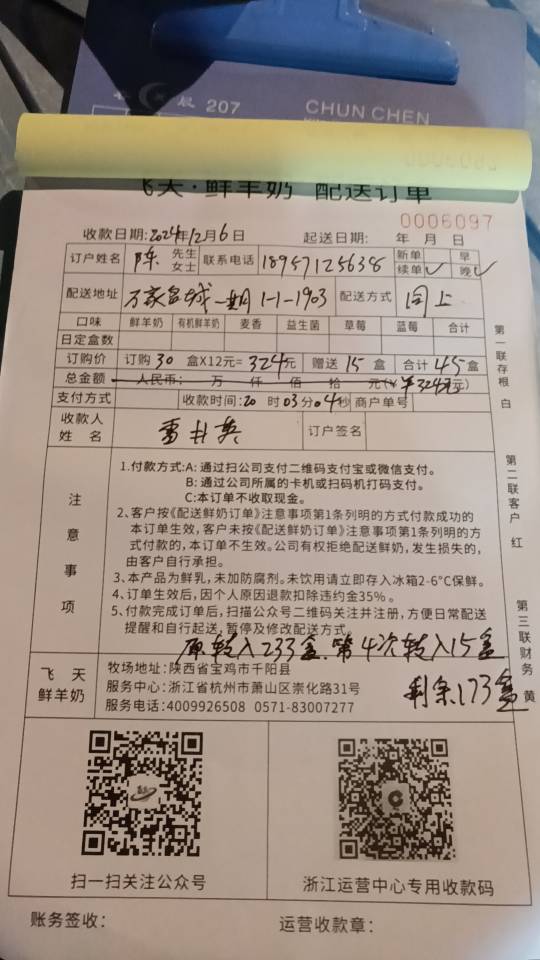 长 辰 207
CHUN CHEN
飞天·鲜羊奶 配送订单
0006097
收款日期:2024年12月6日 起送日期: 年 月 日
订户姓名 陈 先生 女士 联系电话 18957125638 新单 续单✓ 早 晚✓
配送地址 万家名城一期1-1-1903 配送方式 同上
口味 鲜羊奶 有机鲜羊奶 麦香 益生菌 草莓 蓝莓 合计
日定盒数
订购价 订购30盒X12元=324元 赠送15盒 合计45盒
总金额 人民币: 万 仟 佰 拾 元(¥324元)
支付方式 收款时间:20时03分04秒 商户单号
收款人姓名 雷井英 订户签名
注意事项
1.付款方式:A:通过扫公司支付二维码支付宝或微信支付。
B:通过公司所属的卡机或扫码机打码支付。
C:本订单不收取现金。
2、客户按《配送鲜奶订单》注意事项第1条列明的方式付款成功的
本订单生效,客户未按《配送鲜奶订单》注意事项第1条列明的方
式付款的,本订单不生效。公司有权拒绝配送鲜奶,发生损失的,
由客户自行承担。
3、本产品为鲜乳,未加防腐剂。未饮用请立即存入冰箱2-6°C保鲜。
4、订单生效后,因个人原因退款扣除违约金35%。
5、付款完成订单后,扫描公众号二维码关注并注册,方便日常配送
提醒和自行起送,暂停及修改配送方式。
原转入233盒.第4次转入15盒
剩余173盒
飞天鲜羊奶
牧场地址:陕西省宝鸡市千阳县
服务中心:浙江省杭州市萧山区崇化路31号
服务电话:4009926508 0571-83007277
第一联存根 白
第二联客户 红
第三联财务 黄
扫一扫关注公众号 浙江运营中心专用收款码
账务签收: 运营收款章: